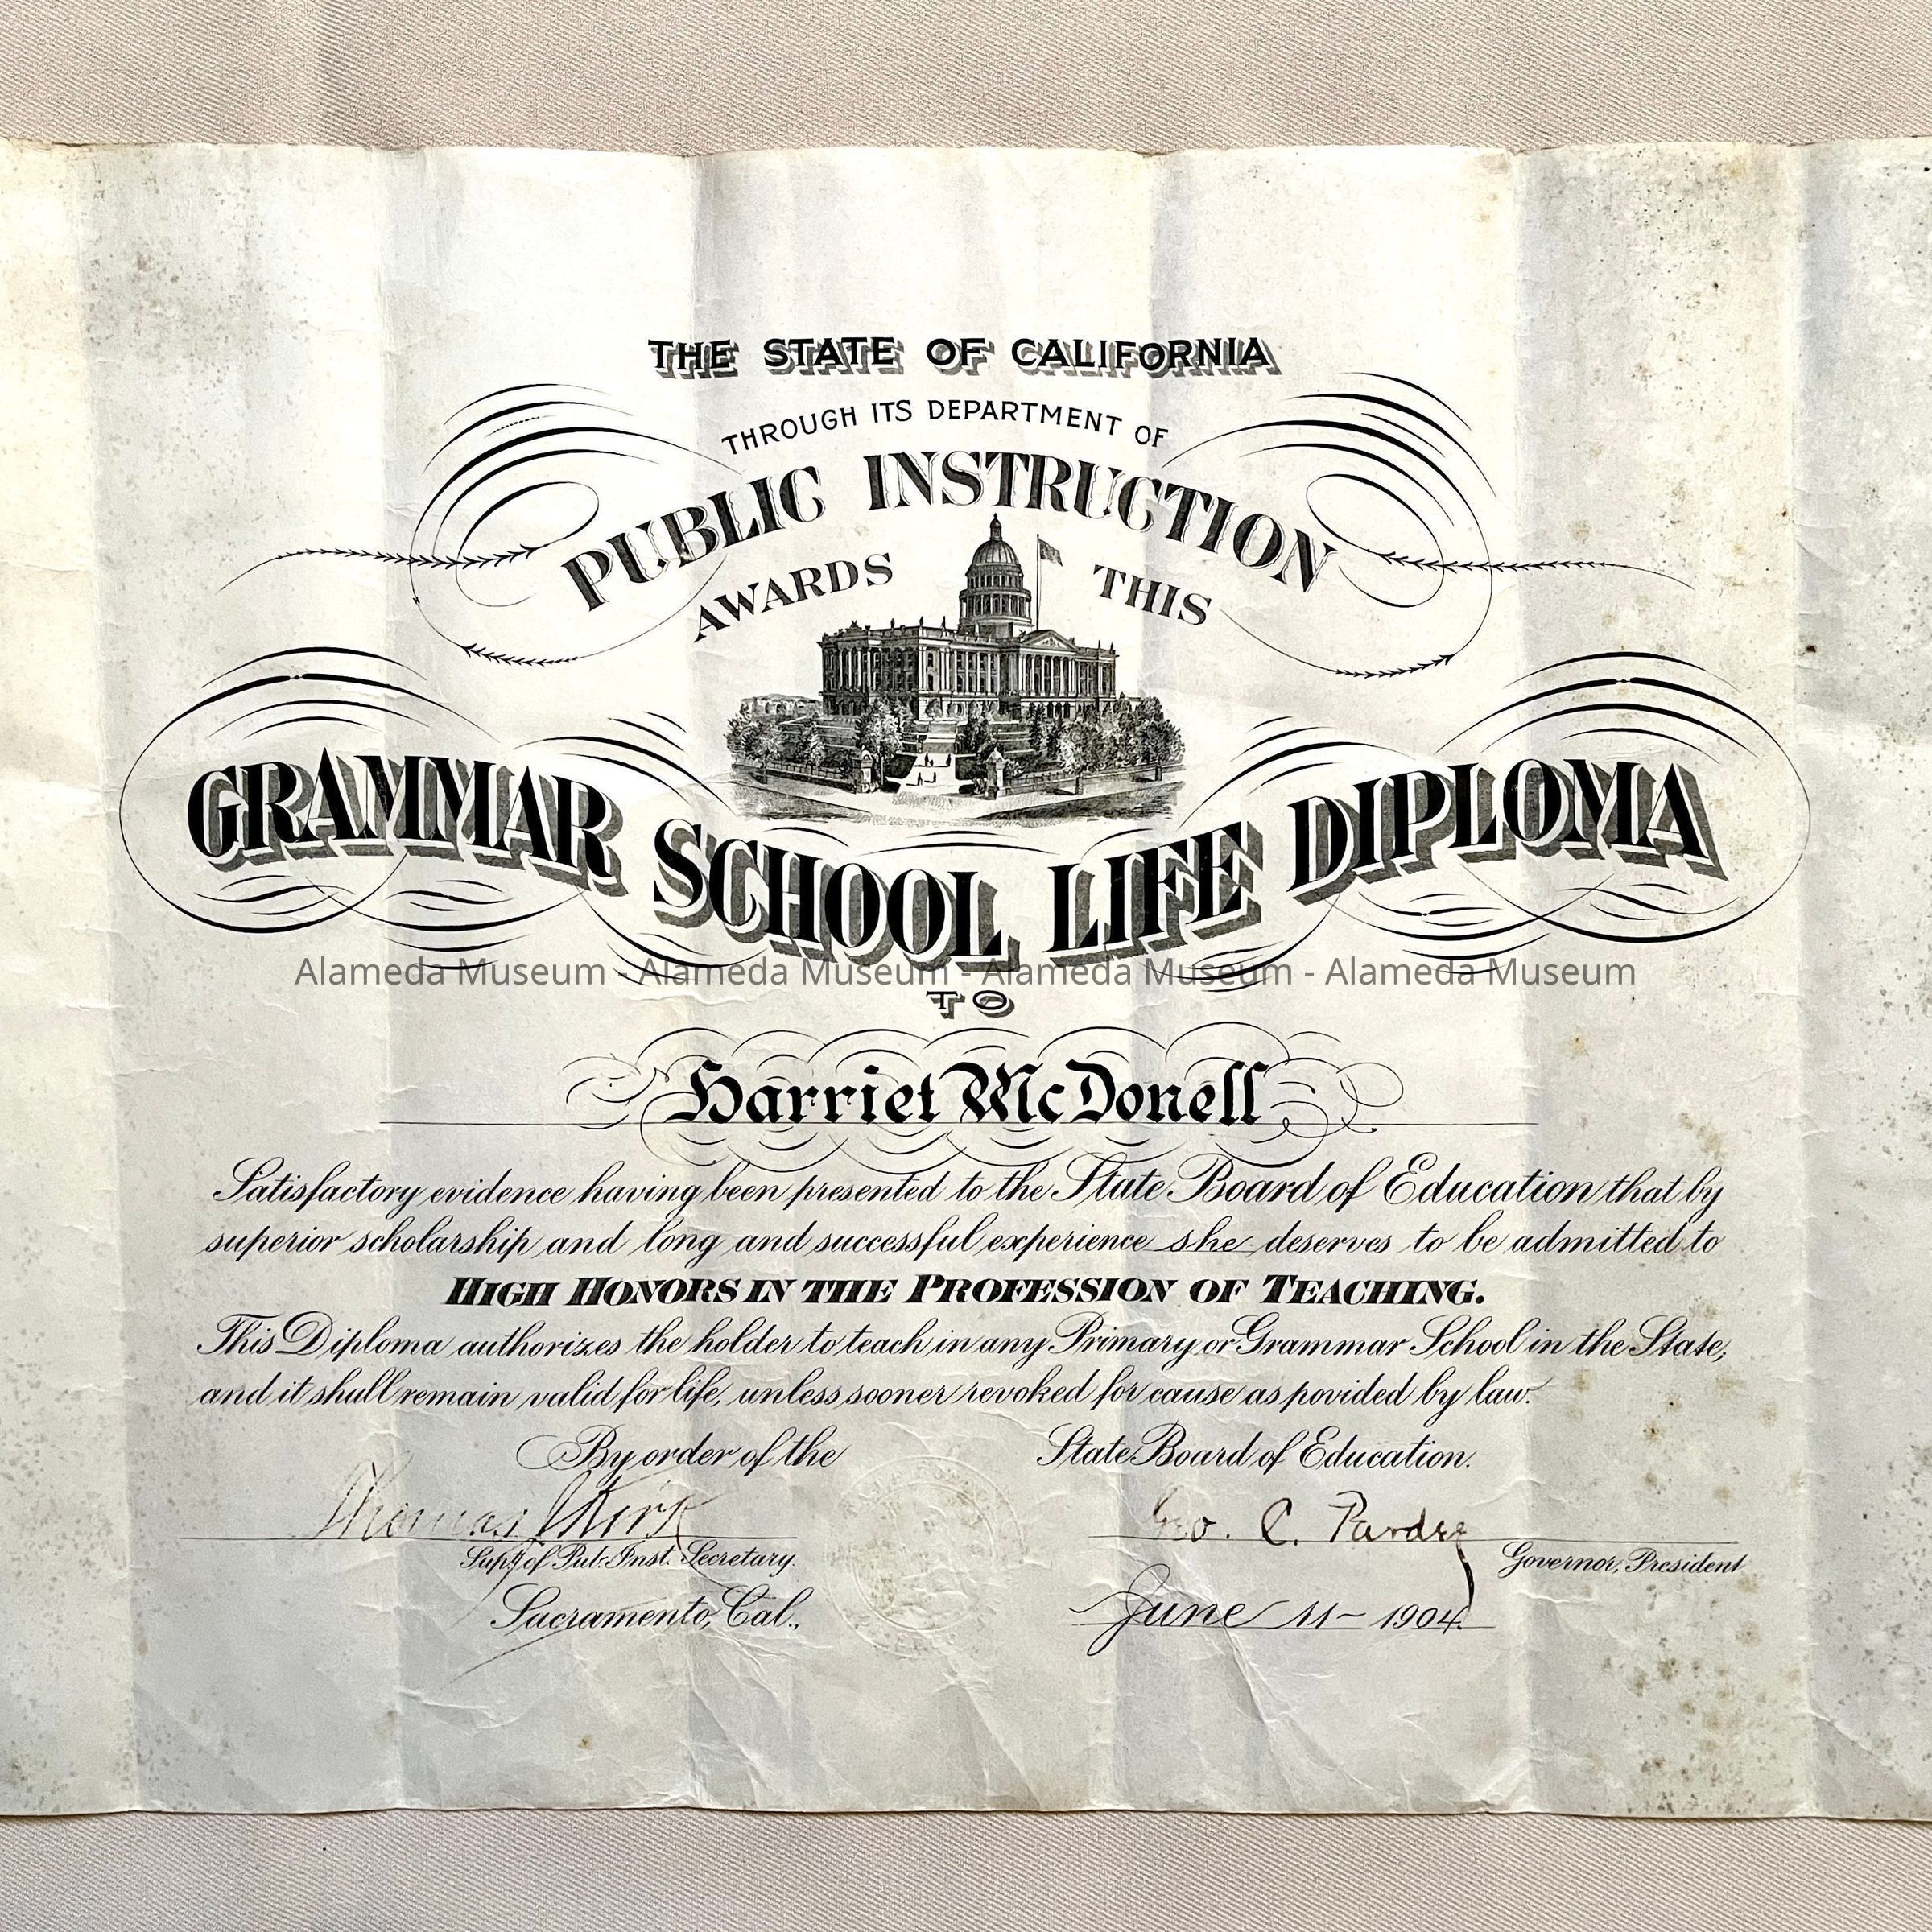 THE STATE OF CALIFORNIA
THROUGH ITS DEPARTMENT OF
PUBLIC INSTRUCTION
AWARDS THIS
GRAMMAR SCHOOL LIFE DIPLOMA
Alameda Museum - Alameda Museum - Alameda Museum - Alameda Museum
TO
Harriet McDonell
Satisfactory evidence having been presented to the State Board of Education that by
superior scholarship and long and successful experience she deserves to be admitted to
HIGH HONORS IN THE PROFESSION OF TEACHING.
This Diploma authorizes the holder to teach in any Primary or Grammar School in the State,
and it shall remain valid for life, unless sooner revoked for cause as povided by law.
By order of the State Board of Education.
Thomas J Kirk Geo. C. Pardee
Supt of Pub. Inst. Secretary. Governor, President
Sacramento, Cal., June 11- 1904.